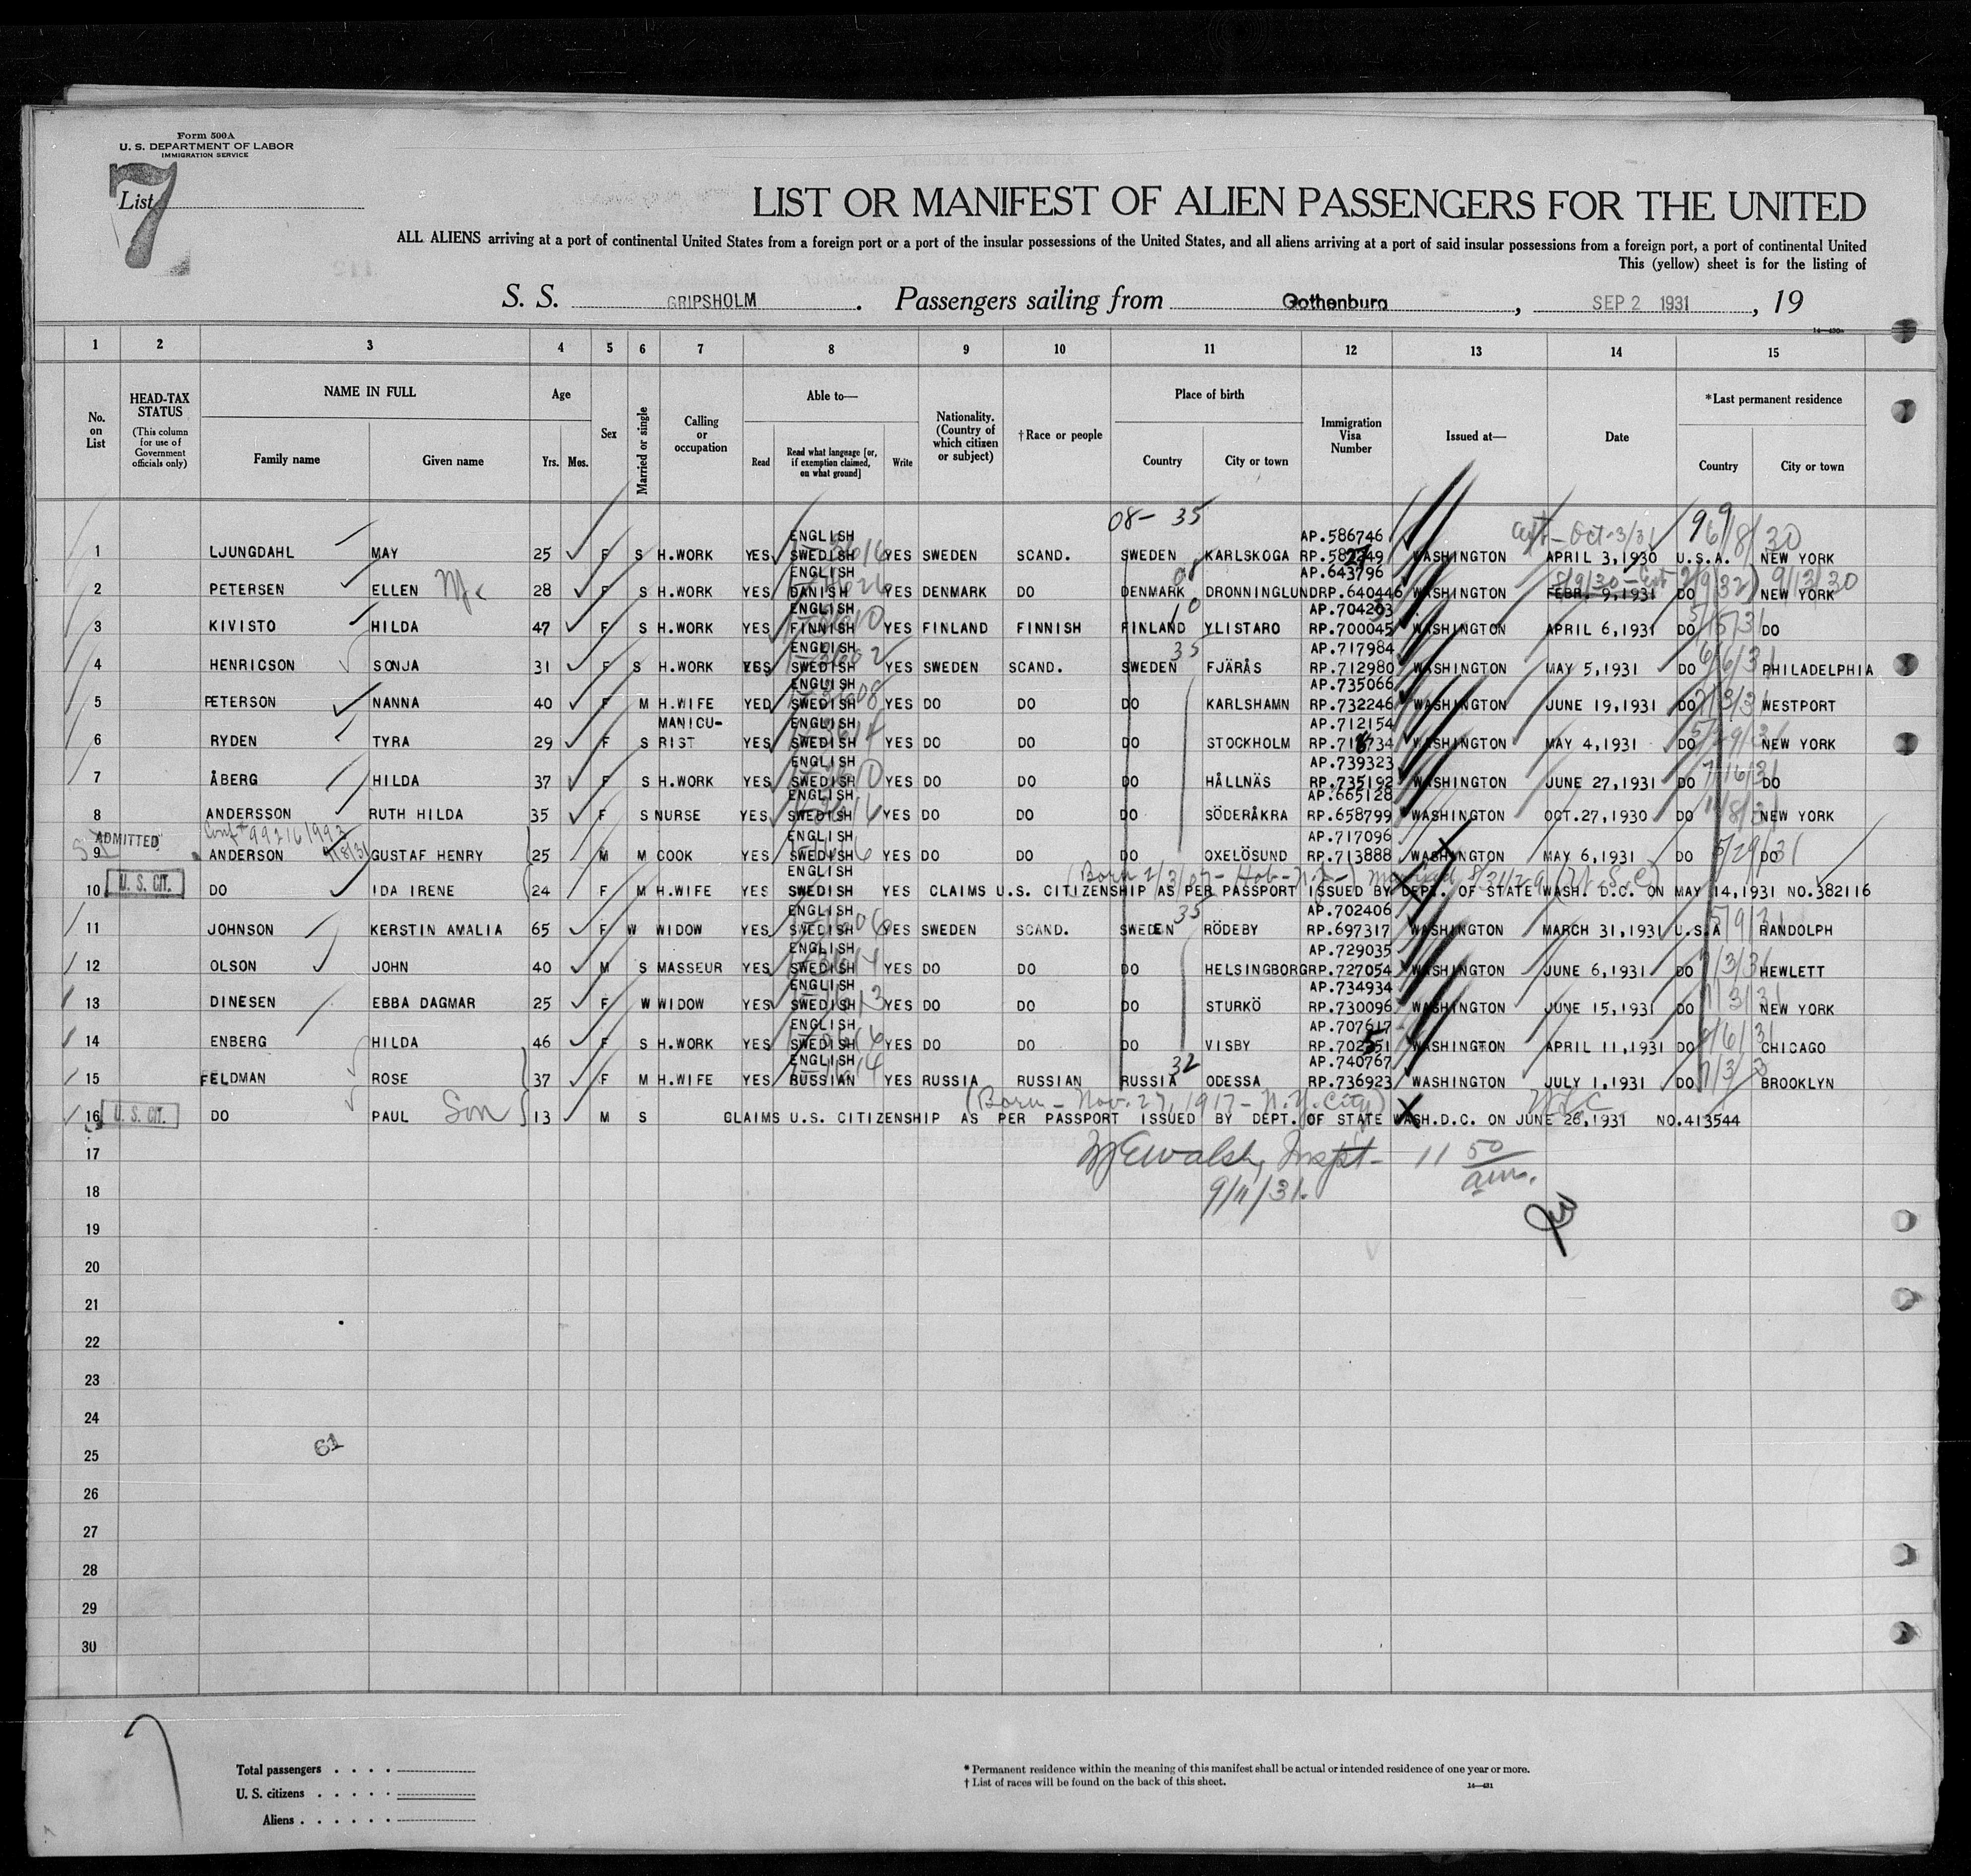 Form 500A
U. S. DEPARTMENT OF LABOR
IMMIGRATION SERVICE
List 7
LIST OR MANIFEST OF ALIEN PASSENGERS FOR THE UNITED
ALL ALIENS arriving at a port of continental United States from a foreign port or a port of the insular possessions of the United States, and all aliens arriving at a port of said insular possessions from a foreign port, a port of continental United
This (yellow) sheet is for the listing of
S. S. GRIPSHOLM. Passengers sailing from Gothenburg, SEP 2 1931, 19
14—430a
1 2 3 4 5 6 7 8 9 10 11 12 13 14 15
No. on List
HEAD-TAX STATUS (This column for use of Government officials only)
NAME IN FULL
Family name Given name
Age
Yrs. Mos.
Sex
Married or single
Calling or occupation
Able to—
Read Read what language [or, if exemption claimed, on what ground] Write
Nationality. (Country of which citizen or subject)
†Race or people
Place of birth
Country City or town
Immigration Visa Number
Issued at—
Date
*Last permanent residence
Country City or town
08- 35
ENGLISH AP.586746 Oct-3/31 6/8/30
1 LJUNGDAHL MAY 25 F S H.WORK YES SWEDISH YES SWEDEN SCAND. SWEDEN KARLSKOGA WASHINGTON APRIL 3,1930 U.S.A. NEW YORK
ENGLISH 08 AP.643796 2/9/32) 9/13/30
2 PETERSEN ELLEN 28 F S H.WORK YES DANISH YES DENMARK DO DENMARK DRONNINGLUND RP.640446 WASHINGTON FEBR. 9,1931 DO NEW YORK
ENGLISH 10
3 KIVISTO HILDA 47 F S H.WORK YES FINNISH YES FINLAND FINNISH FINLAND YLISTARO RP.700045 WASHINGTON APRIL 6,1931 DO DO
ENGLISH 35 AP.717984
4 HENRICSON SONJA 31 F S H.WORK YES SWEDISH YES SWEDEN SCAND. SWEDEN FJÄRÅS RP.712980 WASHINGTON MAY 5,1931 DO PHILADELPHIA
ENGLISH AP.735066
5 PETERSON NANNA 40 F M H.WIFE YED SWEDISH YES DO DO DO KARLSHAMN RP.732246 WASHINGTON JUNE 19,1931 DO WESTPORT
MANICU- ENGLISH AP.712154
6 RYDEN TYRA 29 F S RIST YES SWEDISH YES DO DO DO STOCKHOLM WASHINGTON MAY 4,1931 DO NEW YORK
ENGLISH AP.739323
7 ÅBERG HILDA 37 F S H.WORK YES SWEDISH YES DO DO DO HÅLLNÄS RP.735192 WASHINGTON JUNE 27,1931 DO DO
ENGLISH AP.665128
8 ANDERSSON RUTH HILDA 35 F S NURSE YES SWEDISH YES DO DO DO SÖDERÅKRA RP.658799 WASHINGTON OCT.27,1930 DO NEW YORK
ADMITTED ENGLISH AP.717096
9 ANDERSON GUSTAF HENRY 25 M M COOK YES SWEDISH YES DO DO DO OXELÖSUND RP.713888 WASHINGTON MAY 6,1931 DO DO
ENGLISH
10 U. S. CIT. DO IDA IRENE 24 F M H.WIFE YES SWEDISH YES CLAIMS U.S. CITIZENSHIP AS PER PASSPORT ISSUED BY DEPT. OF STATE WASH. D.C. ON MAY 14,1931 NO.382116
ENGLISH 35 AP.702406
11 JOHNSON KERSTIN AMALIA 65 F W WIDOW YES SWEDISH YES SWEDEN SCAND. SWEDEN RÖDEBY RP.697317 WASHINGTON MARCH 31,1931 U.S.A RANDOLPH
ENGLISH AP.729035
12 OLSON JOHN 40 M S MASSEUR YES SWEDISH YES DO DO DO HELSINGBORG RP.727054 WASHINGTON JUNE 6,1931 DO HEWLETT
ENGLISH AP.734934
13 DINESEN EBBA DAGMAR 25 F W WIDOW YES SWEDISH YES DO DO DO STURKÖ RP.730096 WASHINGTON JUNE 15,1931 DO NEW YORK
ENGLISH AP.707617
14 ENBERG HILDA 46 F S H.WORK YES SWEDISH YES DO DO DO VISBY WASHINGTON APRIL 11,1931 DO CHICAGO
ENGLISH 32 AP.740767
15 FELDMAN ROSE 37 F M H.WIFE YES RUSSIAN YES RUSSIA RUSSIAN RUSSIA ODESSA RP.736923 WASHINGTON JULY 1,1931 DO BROOKLYN
(Born - Nov. 27, 1917 - N.Y. City)
16 U. S. CIT. DO PAUL Son 13 M S CLAIMS U.S. CITIZENSHIP AS PER PASSPORT ISSUED BY DEPT. OF STATE WASH.D.C. ON JUNE 26,1931 NO.413544
17 Walsh, Inspt- 11 50 am.
18 9/11/31.
19
20
21
22
23
24
25
61
26
27
28
29
30
Total passengers
U. S. citizens
Aliens
* Permanent residence within the meaning of this manifest shall be actual or intended residence of one year or more.
† List of races will be found on the back of this sheet.
14—431